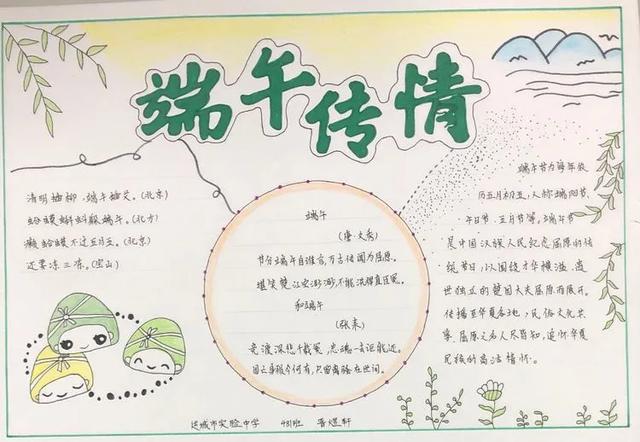 端午传情
清明插柳，端午插艾。(北京)
蛤蟆蝌蚪躲端午。(北方)
癞蛤蟆不过五月五。(北京)
还要冻三冻。(宝山)
端午
(唐·文秀)
节分端午自谁言，万古传闻为屈原。
堪笑楚江空渺渺，不能洗得直臣冤。
和端午
(张耒)
竞渡深悲千载冤，忠魂一去讵能还。
国亡身殒今何有，只留离骚在世间。
端午节为每年农
历五月初五，又称端阳节、
午日节、五月节等。端午节
是中国汉族人民纪念屈原的传
统节日，以围绕才华横溢、遗
世独立的楚国大夫屈原而展开，
传播至华夏各地，民俗文化共
享，屈原之名人尽皆知，追怀华夏
民族的高洁情怀。
运城市实验中学 431班 晋煜轩